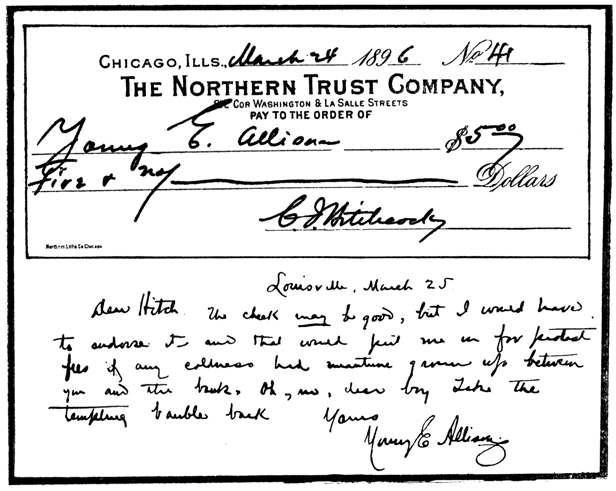 CHICAGO, ILLS., March 24 1896 No 41
THE NORTHERN TRUST COMPANY,
S.E. COR WASHINGTON & LA SALLE STREETS
PAY TO THE ORDER OF
Young E. Allison $5.00
Five & no/ Dollars
C. J. Hitchcock
Northern Litho Co Chicago
Louisville, March 25
Dear Hitch. The check may be good, but I would have
to endorse it and that would put me in for protest
fees if any coldness had meantime grown up between
you and the bank. Oh, no, dear boy take the
tempting bauble back Yours
Young E Allison